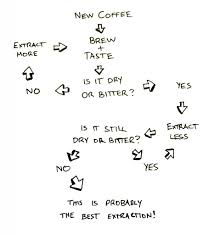 NEW COFFEE
EXTRACT
MORE
BREW
+
TASTE
IS IT DRY
OR BITTER?
NO
YES
IS IT STILL
DRY OR BITTER?
EXTRACT
LESS
NO
YES
THIS IS PROBABLY
THE BEST EXTRACTION!